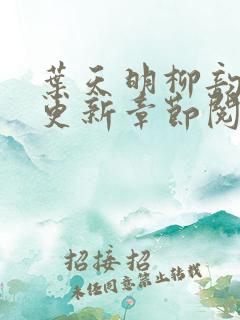 葉天明柳韵
更新章節閱
招接招
未經同意禁止轉載